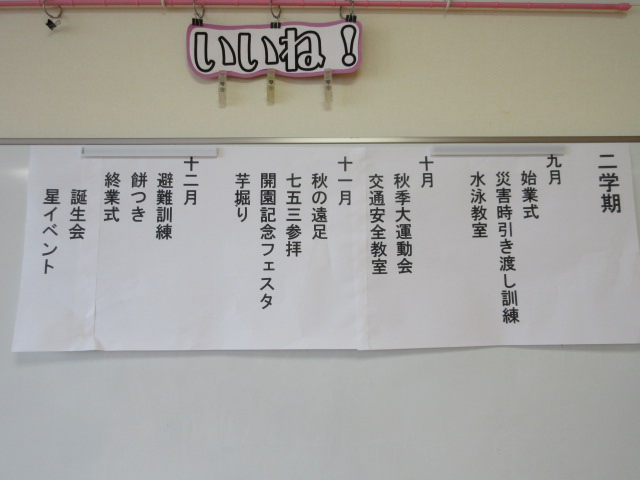 いいね!
二学期
九月
始業式
災害時引き渡し訓練
水泳教室
十月
秋季大運動会
交通安全教室
十一月
秋の遠足
七五三参拝
開園記念フェスタ
芋掘り
十二月
避難訓練
餅つき
終業式
誕生会
星イベント